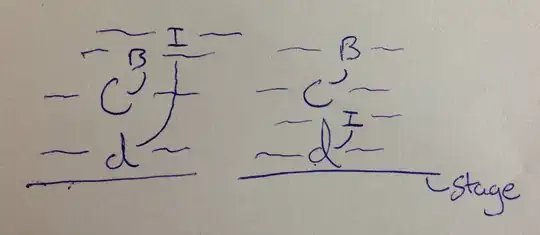 I
B
C
d
B
C
I
d
stage